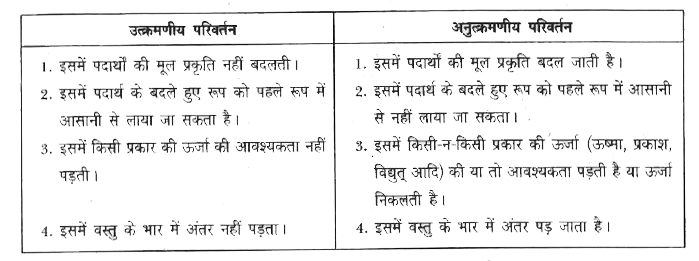 उत्क्रमणीय परिवर्तन
1. इसमें पदार्थों की मूल प्रकृति नहीं बदलती।
2. इसमें पदार्थ के बदले हुए रूप को पहले रूप में
आसानी से लाया जा सकता है।
3. इसमें किसी प्रकार की ऊर्जा की आवश्यकता नहीं
पड़ती।
4. इसमें वस्तु के भार में अंतर नहीं पड़ता।
अनुत्क्रमणीय परिवर्तन
1. इसमें पदार्थों की मूल प्रकृति बदल जाती है।
2. इसमें पदार्थ के बदले हुए रूप को पहले रूप में आसानी
से नहीं लाया जा सकता।
3. इसमें किसी-न-किसी प्रकार की ऊर्जा (ऊष्मा, प्रकाश,
विद्युत् आदि) की या तो आवश्यकता पड़ती है या ऊर्जा
निकलती है।
4. इसमें वस्तु के भार में अंतर पड़ जाता है।